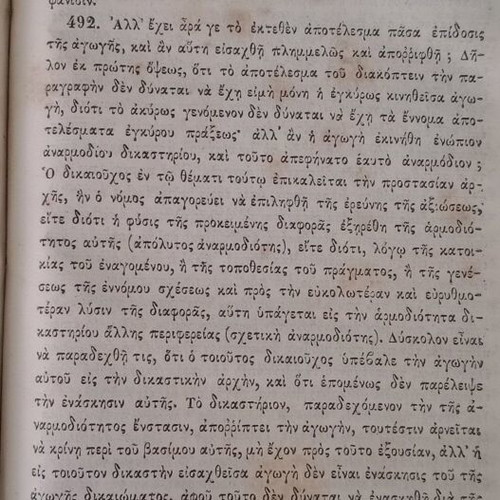 φάνισιν.
492. Ἀλλ' ἔχει ἆρά γε τὸ ἐκτεθὲν ἀποτέλεσμα πᾶσα ἐπίδοσις
τῆς ἀγωγῆς, καὶ ἂν αὕτη εἰσαχθῇ πλημμελῶς καὶ ἀποῤῥιφθῇ ; Δῆ-
λον ἐκ πρώτης ὄψεως, ὅτι τὸ ἀποτέλεσμα τοῦ διακόπτειν τὴν πα-
ραγραφὴν δὲν δύναται νὰ ἔχῃ εἰμὴ μόνη ἡ ἐγκύρως κινηθεῖσα ἀγω-
γὴ, διότι τὸ ἀκύρως γενόμενον δὲν δύναται νὰ ἔχῃ τὰ ἔννομα ἀπο-
τελέσματα ἐγκύρου πράξεως· ἀλλ' ἂν ἡ ἀγωγὴ ἐκινήθη ἐνώπιον
ἀναρμοδίου δικαστηρίου, καὶ τοῦτο ἀπεφήνατο ἑαυτὸ ἀναρμόδιον ;
Ὁ δικαιοῦχος ἐν τῷ θέματι τούτῳ ἐπικαλεῖται τὴν προστασίαν ἀρ-
χῆς, ἣν ὁ νόμος ἀπαγορεύει νὰ ἐπιληφθῇ τῆς ἐρεύνης τῆς ἀξιώσεως,
εἴτε διότι ἡ φύσις τῆς προκειμένης διαφορᾶς ἐξῃρέθη τῆς ἁρμοδιό-
τητος αὐτῆς (ἀπόλυτος ἀναρμοδιότης), εἴτε διότι, λόγῳ τῆς κατοι-
κίας τοῦ ἐναγομένου, ἢ τῆς τοποθεσίας τοῦ πράγματος, ἢ τῆς γενέ-
σεως τῆς ἐννόμου σχέσεως καὶ πρὸς τὴν εὐκολωτέραν καὶ εὐρυθμο-
τέραν λύσιν τῆς διαφορᾶς, αὕτη ὑπάγεται εἰς τὴν ἁρμοδιότητα δι-
καστηρίου ἄλλης περιφερείας (σχετικὴ ἀναρμοδιότης). Δύσκολον εἶναι
νὰ παραδεχθῇ τις, ὅτι ὁ τοιοῦτος δικαιοῦχος ὑπέβαλε τὴν ἀγωγὴν
αὑτοῦ εἰς τὴν δικαστικὴν ἀρχὴν, καὶ ὅτι ἑπομένως δὲν παρέλειψε
τὴν ἐνάσκησιν αὐτῆς. Τὸ δικαστήριον, παραδεχόμενον τὴν τῆς ἀ-
ναρμοδιότητος ἔνστασιν, ἀποῤῥίπτει τὴν ἀγωγὴν, τουτέστιν ἀρνεῖται
νὰ κρίνῃ περὶ τοῦ βασίμου αὐτῆς, μὴ ἔχον πρὸς τοῦτο ἐξουσίαν, ἀλλ' ἡ
εἰς τοιοῦτον δικαστὴν εἰσαχθεῖσα ἀγωγὴ δὲν εἶναι ἐνάσκησις τοῦ τῆς
ἀγωγῆς δικαιώματος, ἀφοῦ τοῦτο δὲν δύναται νὰ ἐνασκηθῇ διὰ τῆς